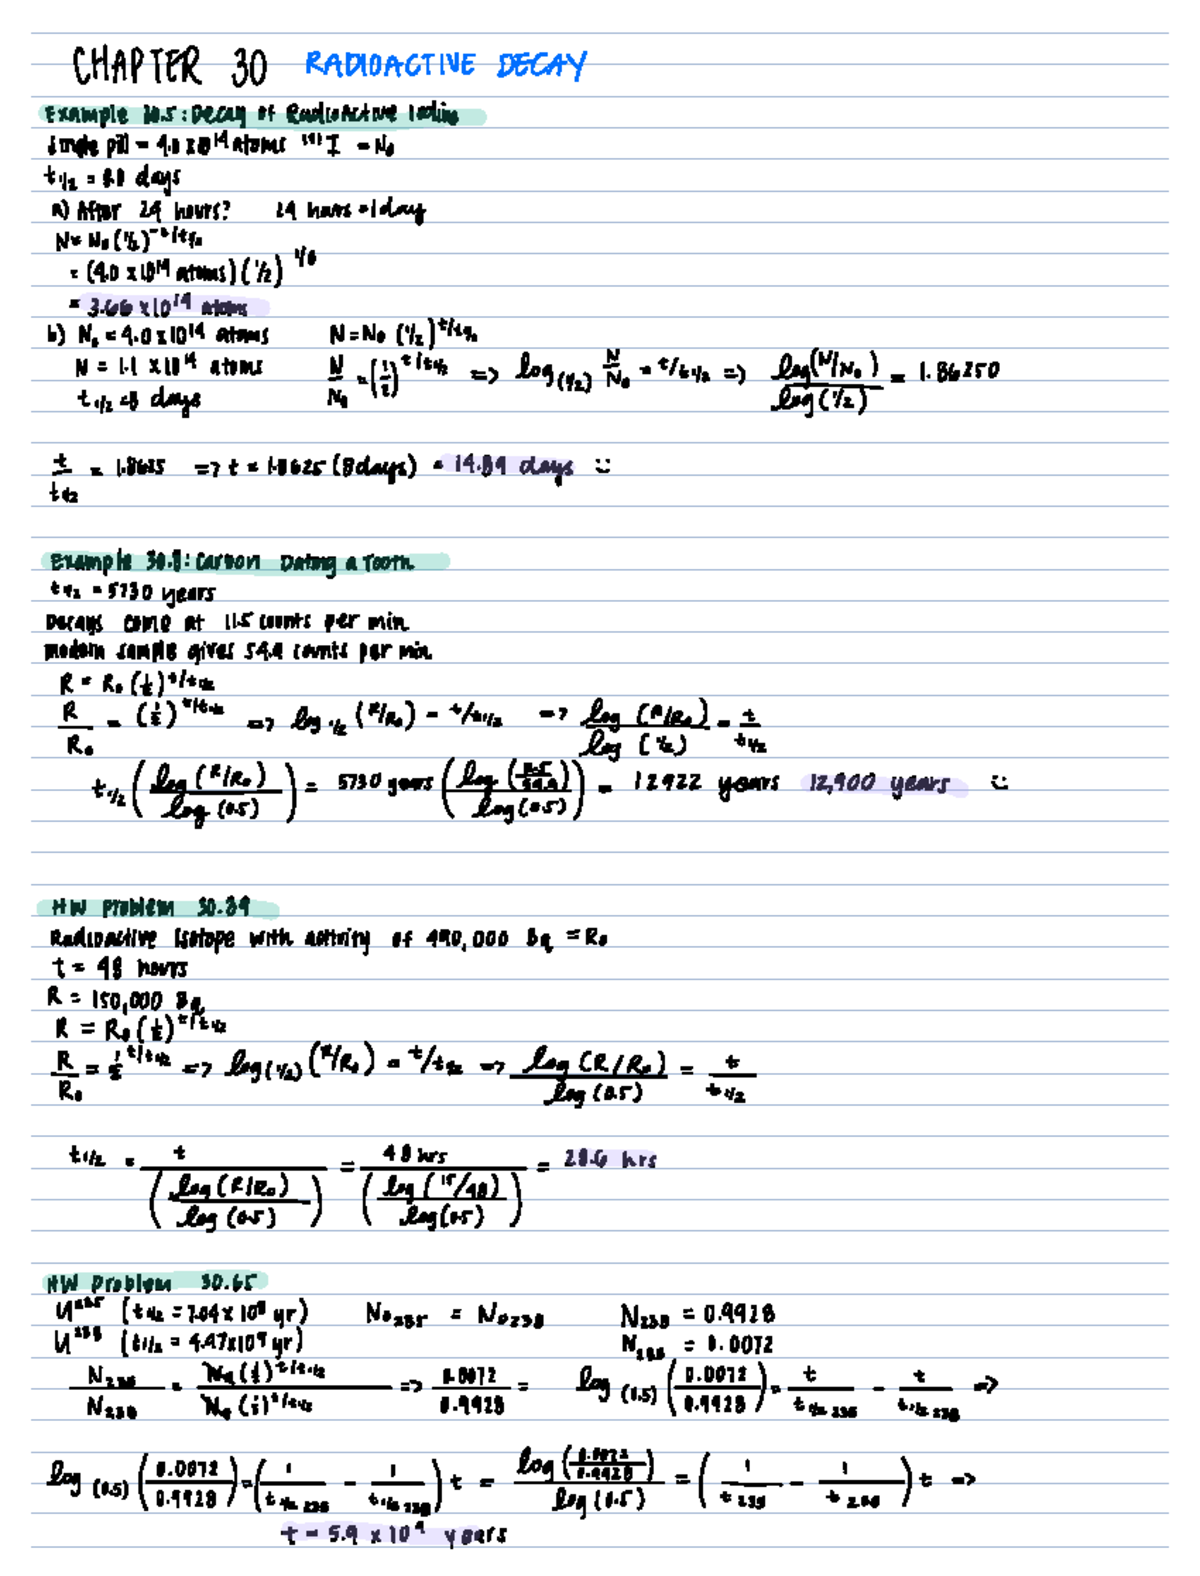 CHAPTER 30 RADIOACTIVE DECAY
Example 30.5: Decay of Radioactive Iodine
Single pill = 4.0 x 10^14 atoms ^131 I = N₀
t1/2 = 8.0 days
a) After 24 hours? 24 hours = 1 day
N = N₀(1/2)^-t/t1/2
= (4.0 x 10^14 atoms)(1/2)^1/8
= 3.66 x 10^14 atoms
b) N₀ = 4.0 x 10^14 atoms N = N₀ (1/2)^t/t1/2
N = 1.1 x 10^14 atoms N/N₀ = (1/2)^t/t1/2 => log(1/2) N/N₀ = t/t1/2 => log(N/N₀)/log(1/2) = 1.86250
t1/2 = 8 days
t/t1/2 = 1.8625 => t = 1.8625 (8 days) = 14.89 days :)
Example 30.8: Carbon Dating a Tooth
t1/2 = 5730 years
Decays come at 11.5 counts per min.
modern sample gives 54.9 counts per min.
R = R₀(1/2)^t/t1/2
R/R₀ = (1/2)^t/t1/2 => log1/2 (R/R₀) = t/t1/2 => log(R/R₀)/log(1/2) = t/t1/2
t1/2 (log(R/R₀)/log(0.5)) = 5730 years (log(11.5/54.9)/log(0.5)) = 12922 years 12,900 years :)
HW Problem 30.39
Radioactive Isotope with activity of 480,000 Bq = R₀
t = 48 hours
R = 150,000 Bq
R = R₀(1/2)^t/t1/2
R/R₀ = 1/2^t/t1/2 => log(1/2) (R/R₀) = t/t1/2 => log(R/R₀)/log(0.5) = t/t1/2
t1/2 = t/(log(R/R₀)/log(0.5)) = 48 hrs/(log(15/48)/log(0.5)) = 28.6 hrs
HW Problem 30.65
U^235 (t1/2 = 7.04 x 10^8 yr) N₀235 = N₀238 N238 = 0.9928
U^238 (t1/2 = 4.47x10^9 yr) N235 = 0.0072
N235/N238 = N₀(1/2)^t/t1/2/N₀(1/2)^t/t1/2 => 0.0072/0.9928 = log(0.5) (0.0072/0.9928) = t/t1/2 235 - t/t1/2 238 =>
log(0.5) (0.0072/0.9928) = (1/t1/2 235 - 1/t1/2 238) t = log(0.0072/0.9928)/log(0.5) = (1/t235 - 1/t238) t =>
t = 5.9 x 10^9 years